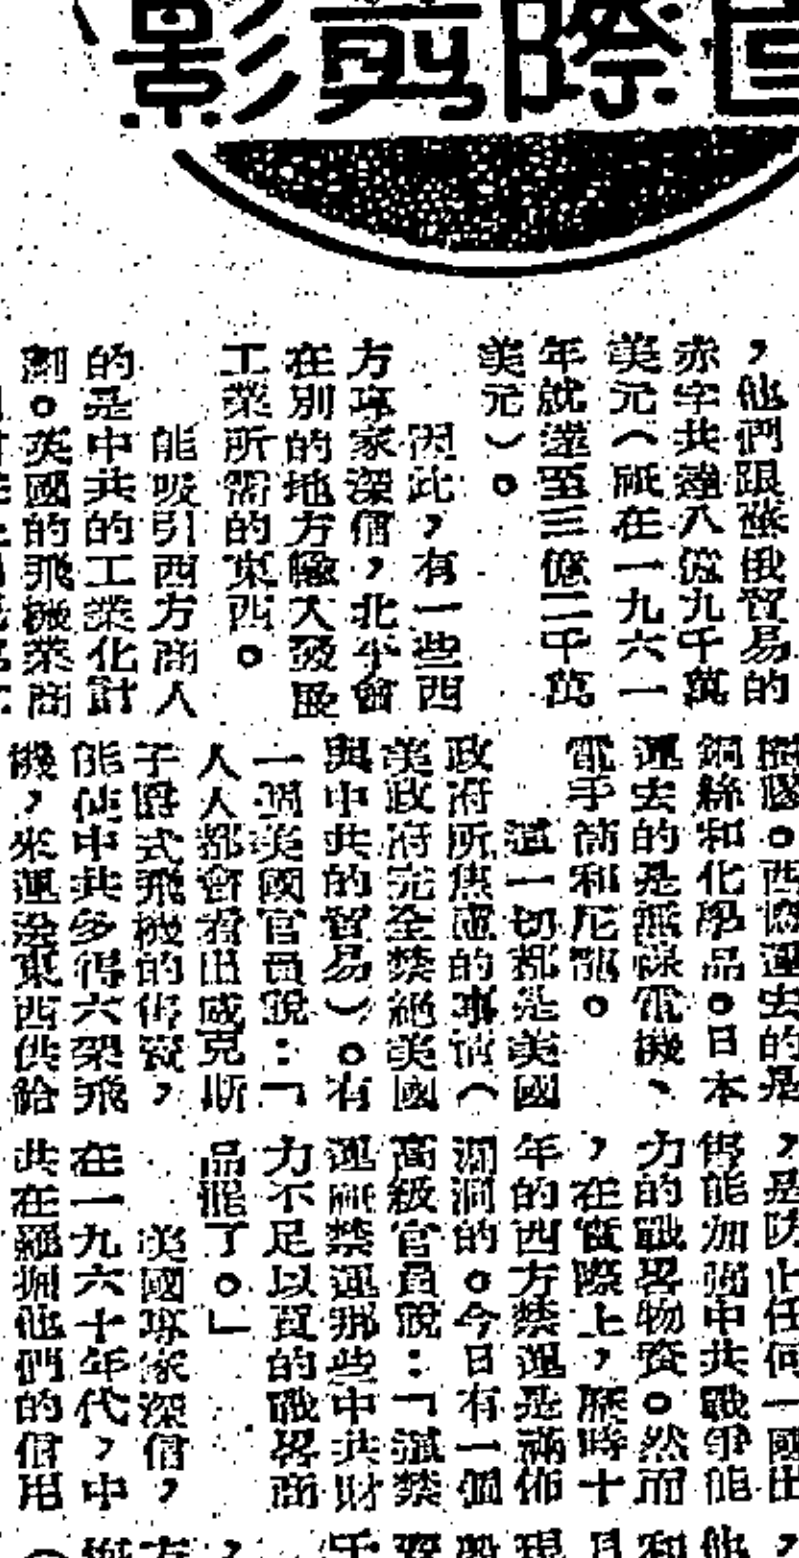 國際剪影
，他們跟蘇俄貿易的
赤字共達八億九千萬
美元（祇在一九六一
年就達至三億二千萬
美元）。
因此，有一些西
方專家深信，北平會
在別的地方極大發展
工業所需的東西。
能吸引西方商人
的是中共的工業化計
劃。英國的飛機業商
橡膠。西德運去的是
銅絲和化學品。日本
運去的是無線電機、
電手筒和尼龍。
這一切都是美國
政府所焦慮的事情（
美政府完全禁絕美國
與中共的貿易）。有
一個美國官員說：「
人人都會看出威克斯
子爵式飛機的售賣，
能使中共多得六架飛
機，來運送東西供給
，是防止任何一國出
售能加強中共戰爭能
力的戰畧物資。然而
，在實際上，歷時十
年的西方禁運是滿佈
漏洞的。今日有一個
高級官員說：「這禁
運祇禁運那些中共財
力不足以買的戰畧商
品罷了。」
美國專家深信，
在一九六十年代，中
共在羅掘他們的信用